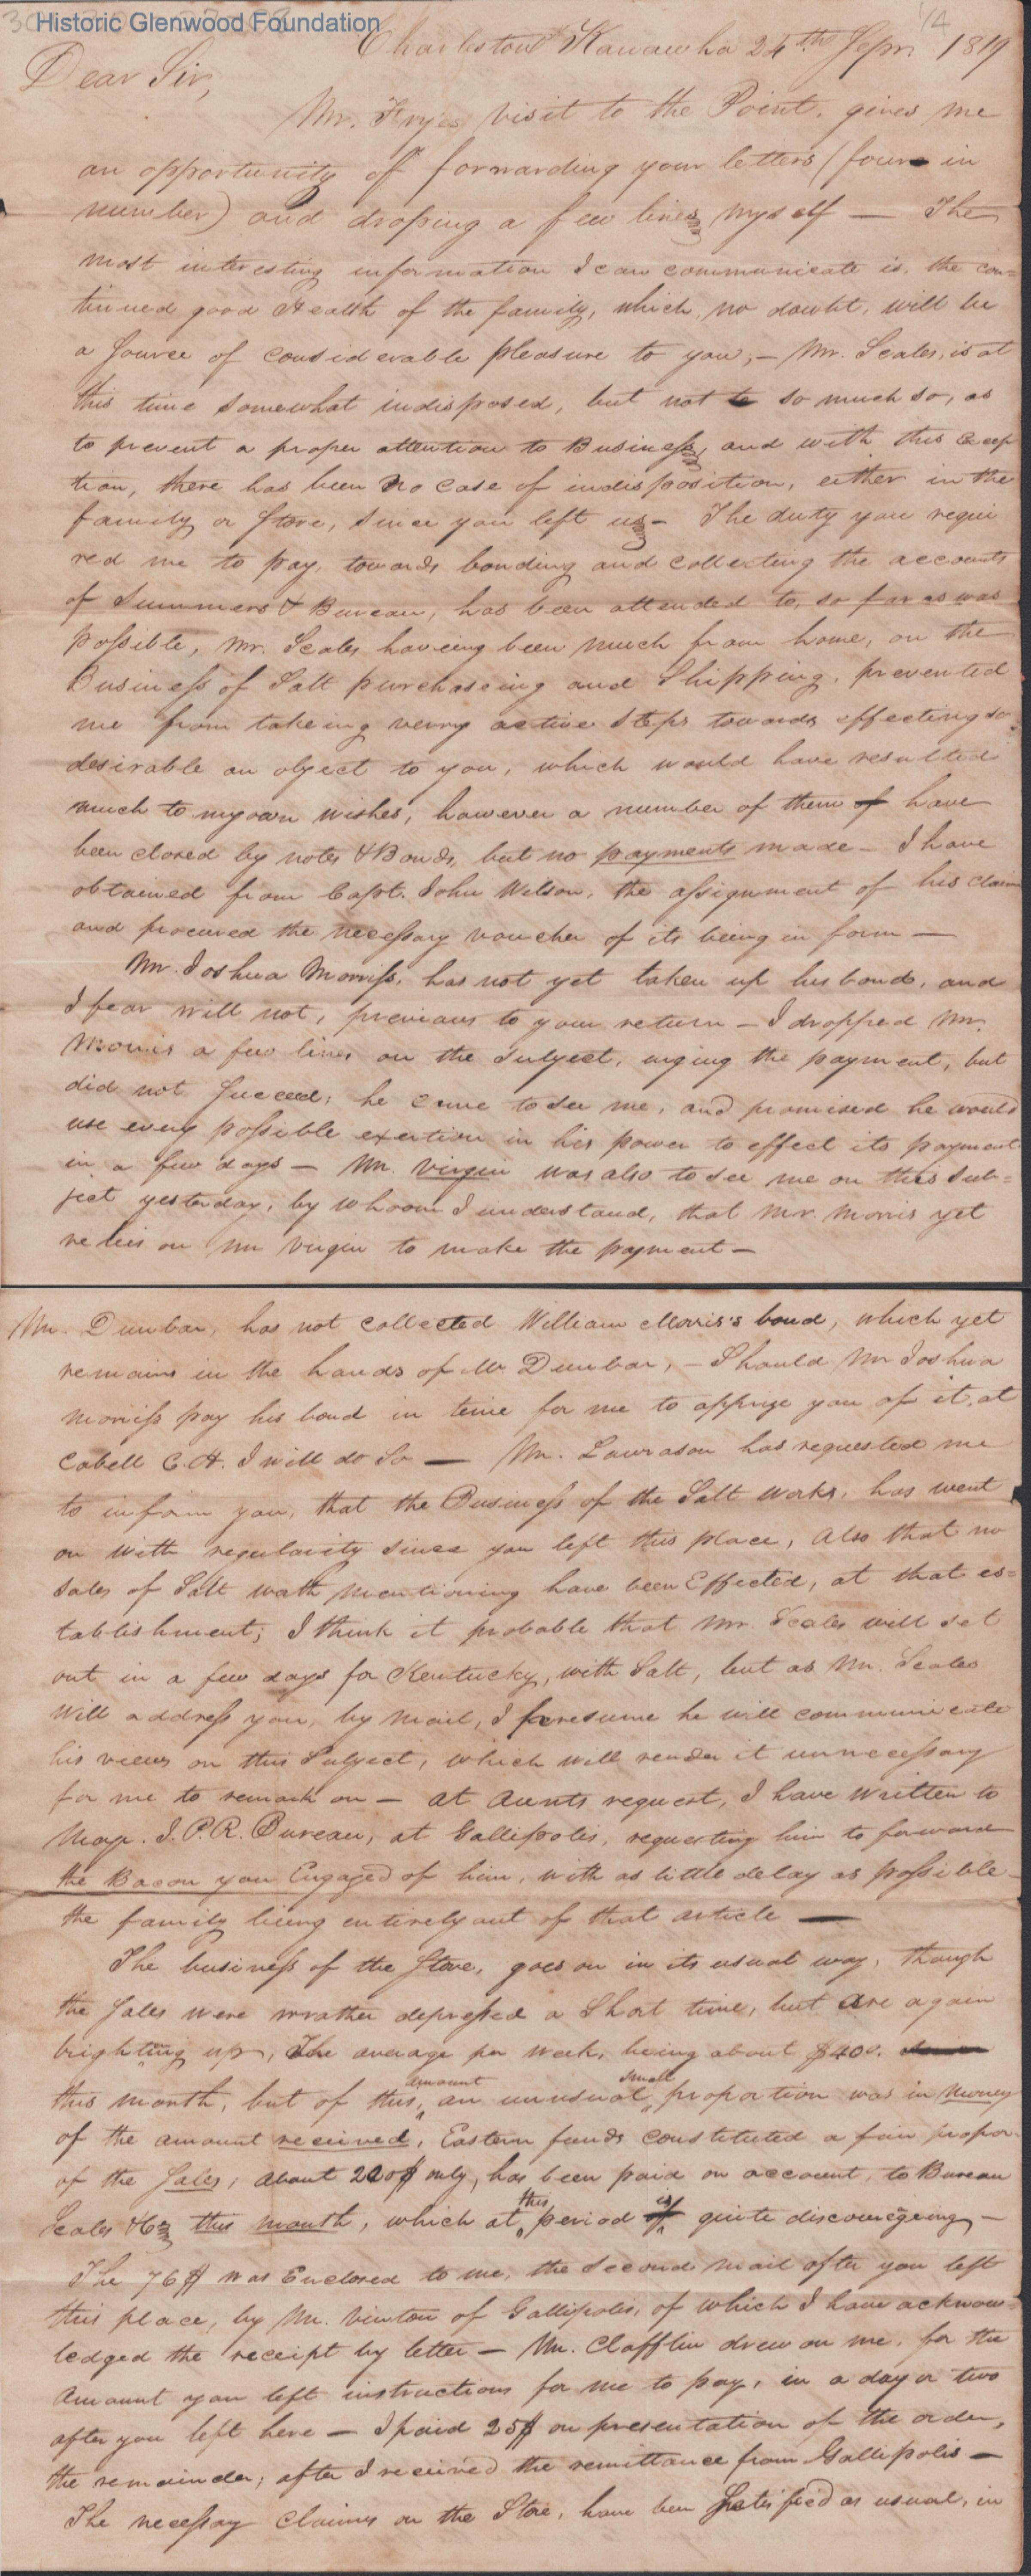 Historic Glenwood Foundation
1/4
Charleston Kanawha 24th Sepr. 1819
Dear Sir,
Mr. Frys visit to the Point, gives me
an opportunity of forwarding your letters (four in
number) and droping a few lines myself — The
most interesting information I can communicate is, the con=
tinued good Health of the family, which, no doubt, will be
a source of considerable pleasure to you, — Mr. Scales, is at
this time somewhat indisposed, but not to so much so, as
to prevent a proper attention to Business, and with this Excep
tion, there has been no case of indisposition, either in the
family or Store, since you left us — The duty you requi
red me to pay, towards bonding and collecting the accounts
of Summers & Bureau, has been attended to, so far as was
possible, Mr. Scales haveing been much from home, on the
Business of Salt purchaseing and Shipping, prevented
me from takeing verry active steps towards effecting so
desirable an object to you, which would have resulted
much to my own wishes, however a number of them of have
been closed by notes & Bonds, but no payments made — I have
obtained from Capt. John Wilson, the assignment of his claim
and procured the necessary voucher of its being in form —
Mr. Joshua Morriss, has not yet taken up his bond, and
I fear will not, previous to your return — I dropped Mr.
Morris a few lines on the subject, urging the payment, but
did not succeed, he came to see me, and promised he would
use every possible exertion in his power to effect its payment
in a few days — Mr. Virgin was also to see me on this sub=
ject yesterday, by whoom I understand, that Mr. Morris yet
relies on Mr Virgin to make the payment —
Mr. Dunbar, has not collected William Morris's bond, which yet
remains in the hands of Mr Dunbar, — Should Mr Joshua
Morriss pay his bond in time for me to apprize you of it, at
Cabell C.H. I will do so — Mr. Lawrason has requested me
to inform you, that the Business of the Salt works, has went
on with regularity since you left this place, Also that no
sales of Salt worth mentioning have been Effected, at that es=
tablishment; I think it probable that Mr. Scales will set
out in a few days for Kentucky, with Salt, but as Mr. Scales
Will address you, by mail, I presume he will communicate
his views on this Subject, which will render it unnecessary
for me to remark on — at Aunts request, I have written to
Majr. J.P.R. Bureau, at Gallipolis, requesting him to forward
the Bacon you Engaged of him, with as little delay as possible
the family being entirely out of that article —
The business of the Store, goes on in its usual way, though
the Sales were wrather depressed a Short time, but are again
brighting up, The average per week, being about $400.
this month, but of this amount an unusual small proportion was in money
of the amount received, Eastern funds constituted a fair propor.
of the Sales, about 220$ only, has been paid on account, to Bureau
Scales & Co this month, which at this period is quite discouregeing —
The 76$ was Enclosed to me, the second mail after you left
this place, by Mr. Vinton of Gallipolis, of which I have acknow=
ledged the receipt by letter — Mr. Clafflin drew on me, for the
amount you left instructions for me to pay, in a day or two
after you left here — I paid 25$ on presentation of the order,
the remainder, after I received the remittance from Gallipolis —
The necessary claims on the Store, have been satisfied as usual, in